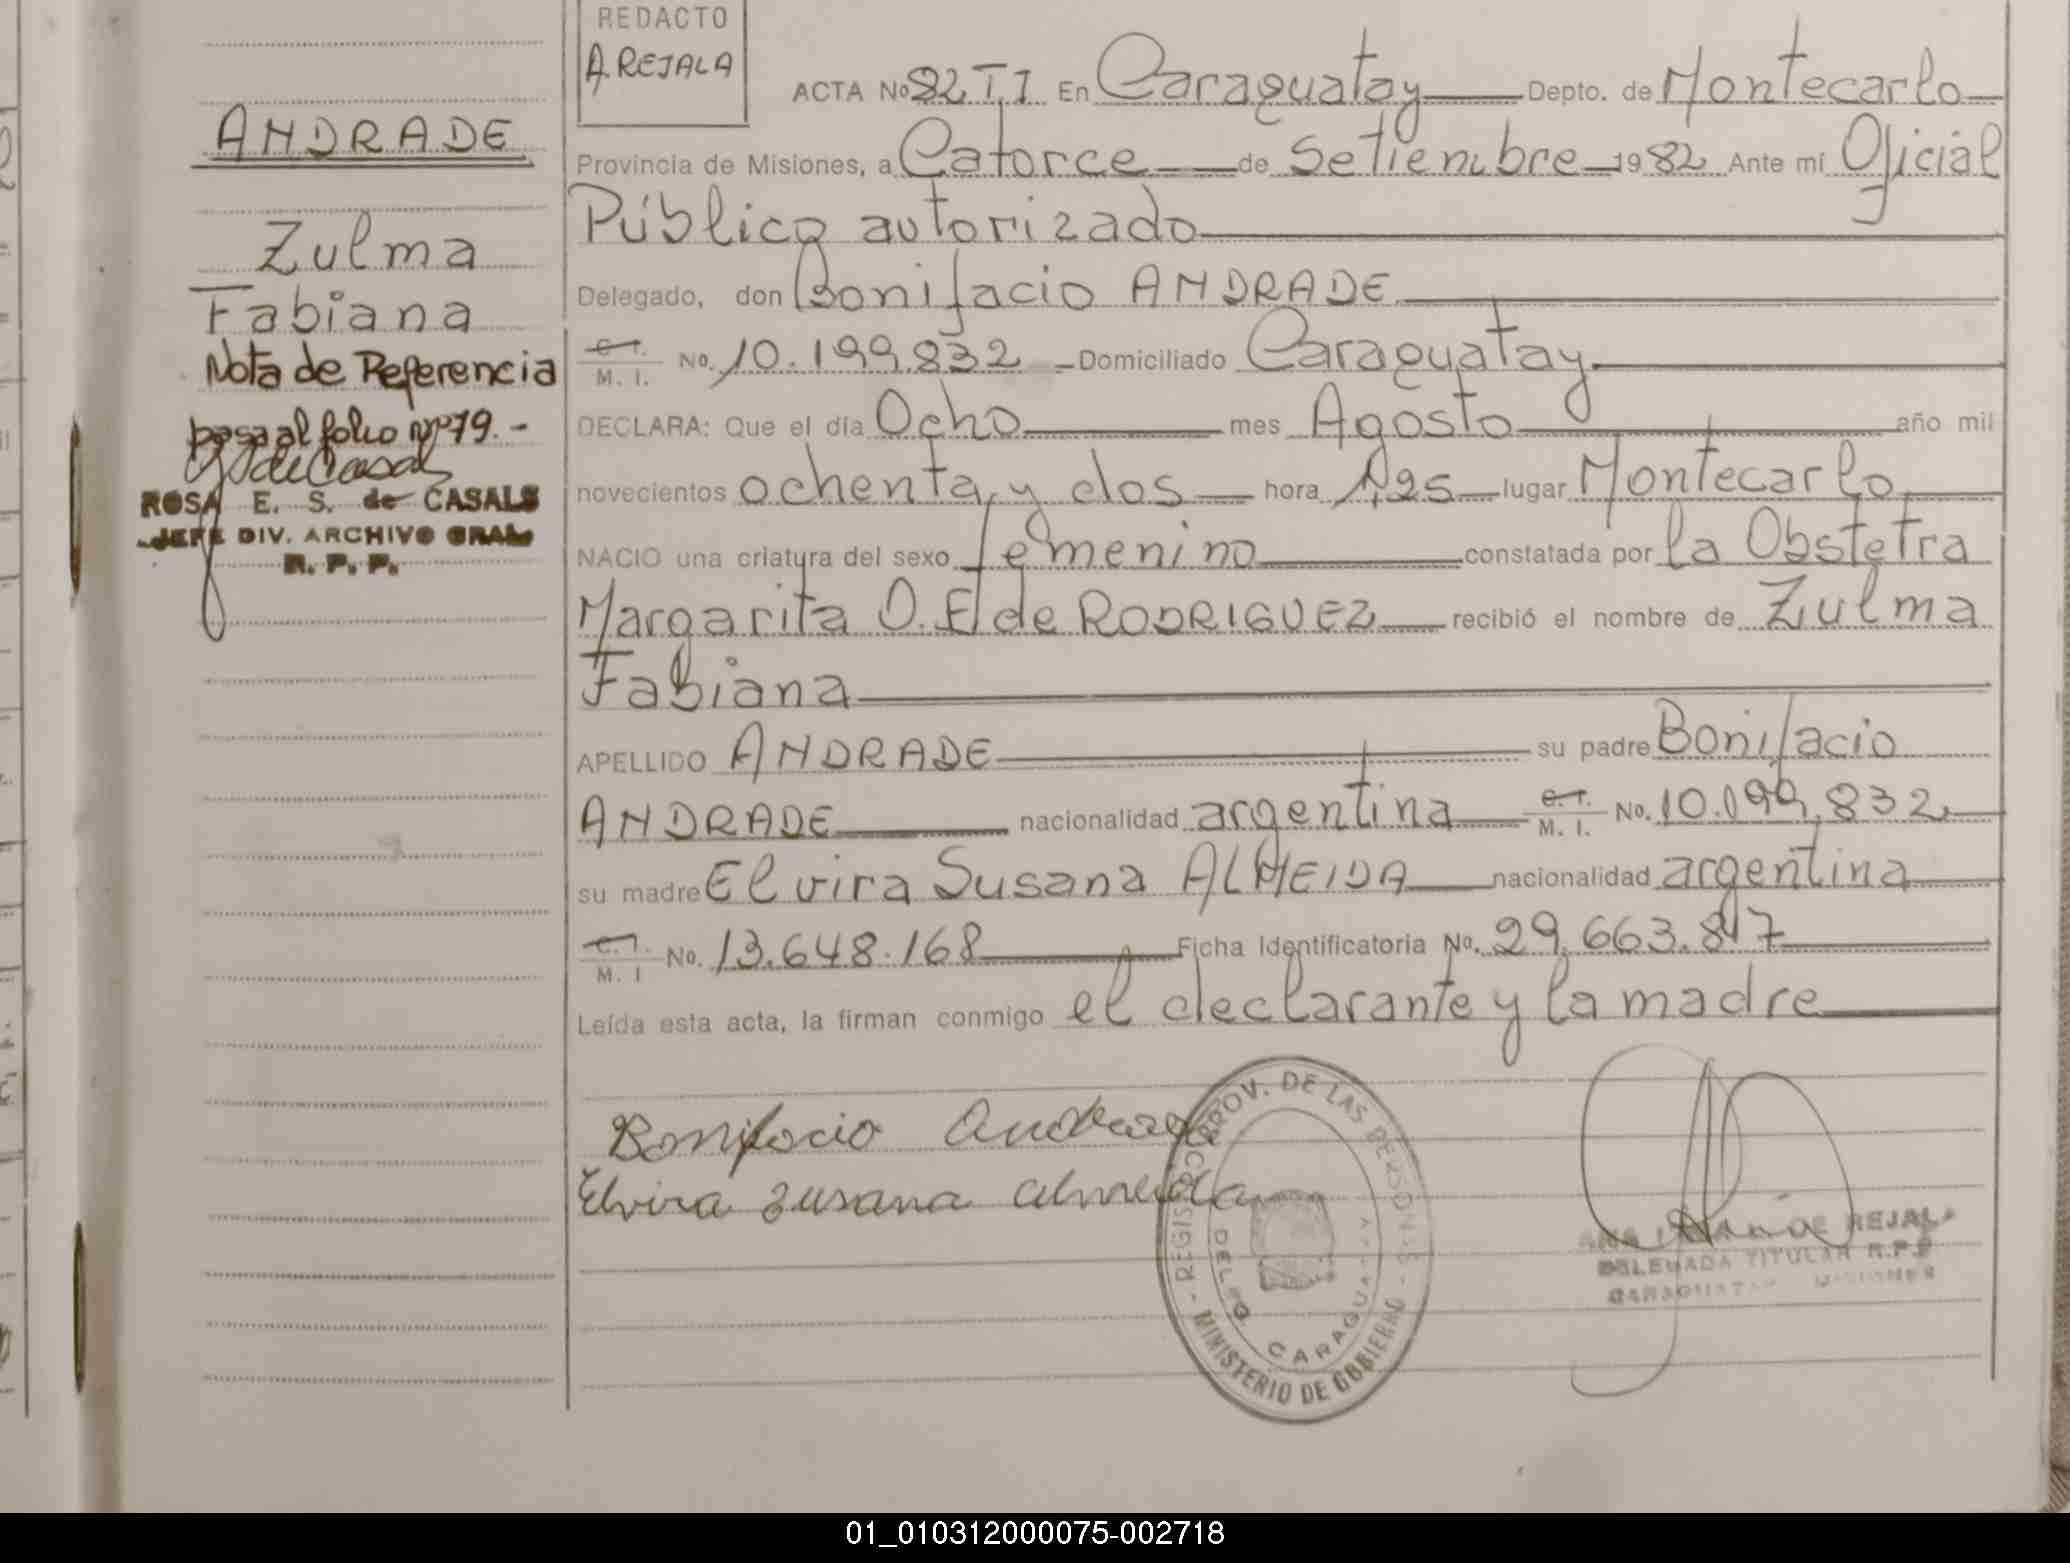 REDACTO
A. REJALA
ANDRADE
Zulma
Fabiana
Nota de Referencia
pasa al folio Nº 79.-
ROSA E. S. de CASALS
JEFE DIV. ARCHIVO GRAL
R. P. P.
ACTA No 82 T.I En Caraguatay Depto. de Montecarlo
Provincia de Misiones, a Catorce de Setiembre 1982 Ante mí Oficial
Público autorizado
Delegado, don Bonifacio ANDRADE
C. I. M. I. No. 10.199.832 Domiciliado Caraguatay
DECLARA: Que el día Ocho mes Agosto año mil
novecientos ochenta y dos hora 1,25 lugar Montecarlo
NACIO una criatura del sexo femenino constatada por la Obstetra
Margarita O. E de RODRIGUEZ recibió el nombre de Zulma
Fabiana
APELLIDO ANDRADE su padre Bonifacio
ANDRADE nacionalidad argentina C. I. M. I. No. 10.199.832
su madre Elvira Susana ALMEIDA nacionalidad argentina
C. I. M. I No. 13.648.168 Ficha Identificatoria No. 29.663.817
Leída esta acta, la firman conmigo el declarante y la madre
Bonifacio Andrade
Elvira Susana Almeida
REGISTRO PROV. DE LAS PERSONAS - MINISTERIO DE GOBIERNO -
DELEG CARAGUATAY
DE REJALA
DELEGADA TITULAR R.P.P
CARAGUATAY MISIONES
01_010312000075-002718